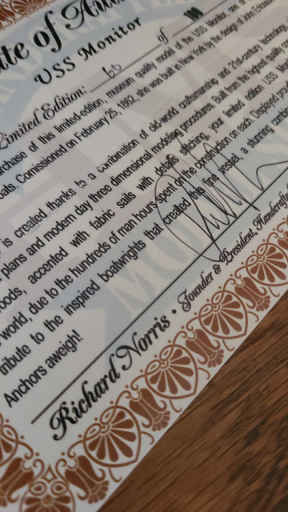 te of Auth
USS Monitor
Limited Edition: of
rchase of this limited-edition, museum quality model of the USS Monitor, are
oats. Comissioned on February 25, 1862, she was built in New York by the design of John Ericsson
is created thanks to a combination of old-world craftsmanship and 21st-century
plans and modern day three dimensional modeling procedures. Built from the highest quality
oods, accented with fabric sails with details stitching, your limited edition USS
world, due to the hundreds of man hours spent in the construction on each. Displayed
tribute to the inspired boatwrights that created this
Anchors aweigh!
Richard Norris • Founder & President, Handcrafted